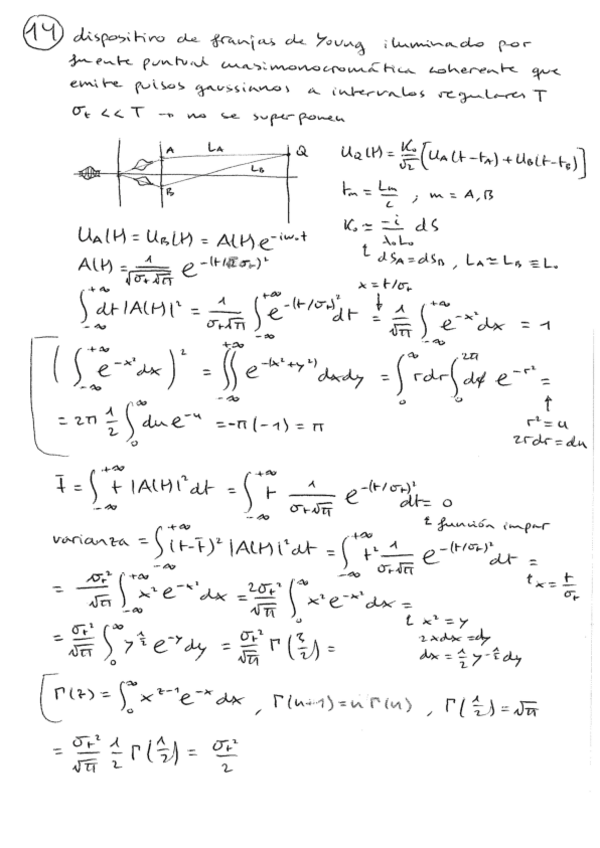 14 dispositivo de franjas de Young iluminado por
fuente puntual cuasimonocromática coherente que
emite pulsos gaussianos a intervalos regulares T
σt << T → no se superponen
A LA Q
LB
B
UQ(t) = K₀/√2 [UA(t-tA) + UB(t-tB)]
tm = Lm/c ; m = A, B
K₀ ≃ -i/(λ₀L₀) dS
dSA = dSB , LA ≃ LB ≡ L₀
UA(t) = UB(t) = A(t) e^(-iω₀t)
A(t) = 1/√(σt√π) e^(-(t/√2σt)²)
x = t/σt
∫_{-∞}^{+∞} dt |A(t)|² = 1/(σt√π) ∫_{-∞}^{+∞} e^(-(t/σt)²) dt = 1/√π ∫_{-∞}^{+∞} e^(-x²) dx = 1
(∫_{-∞}^{+∞} e^(-x²) dx)² = ∬_{-∞}^{+∞} e^(-(x²+y²)) dxdy = ∫_0^∞ rdr ∫_0^{2π} dφ e^(-r²) =
= 2π 1/2 ∫_0^∞ du e^(-u) = -π(-1) = π
r² = u
2rdr = du
t̄ = ∫_{-∞}^{+∞} t |A(t)|² dt = ∫_{-∞}^{+∞} t 1/(σt√π) e^(-(t/σt)²) dt = 0
función impar
varianza = ∫_{-∞}^{+∞} (t-t̄)² |A(t)|² dt = ∫_{-∞}^{+∞} t² 1/(σt√π) e^(-(t/σt)²) dt =
x = t/σt
= σt²/√π ∫_{-∞}^{+∞} x² e^(-x²) dx = 2σt²/√π ∫_0^∞ x² e^(-x²) dx =
x² = y
2xdx = dy
dx = 1/2 y^(-1/2) dy
= σt²/√π ∫_0^∞ y^(1/2) e^(-y) dy = σt²/√π Γ(3/2) =
Γ(z) = ∫_0^∞ x^(z-1) e^(-x) dx , Γ(n+1) = n Γ(n) , Γ(1/2) = √π
= σt²/√π 1/2 Γ(1/2) = σt²/2